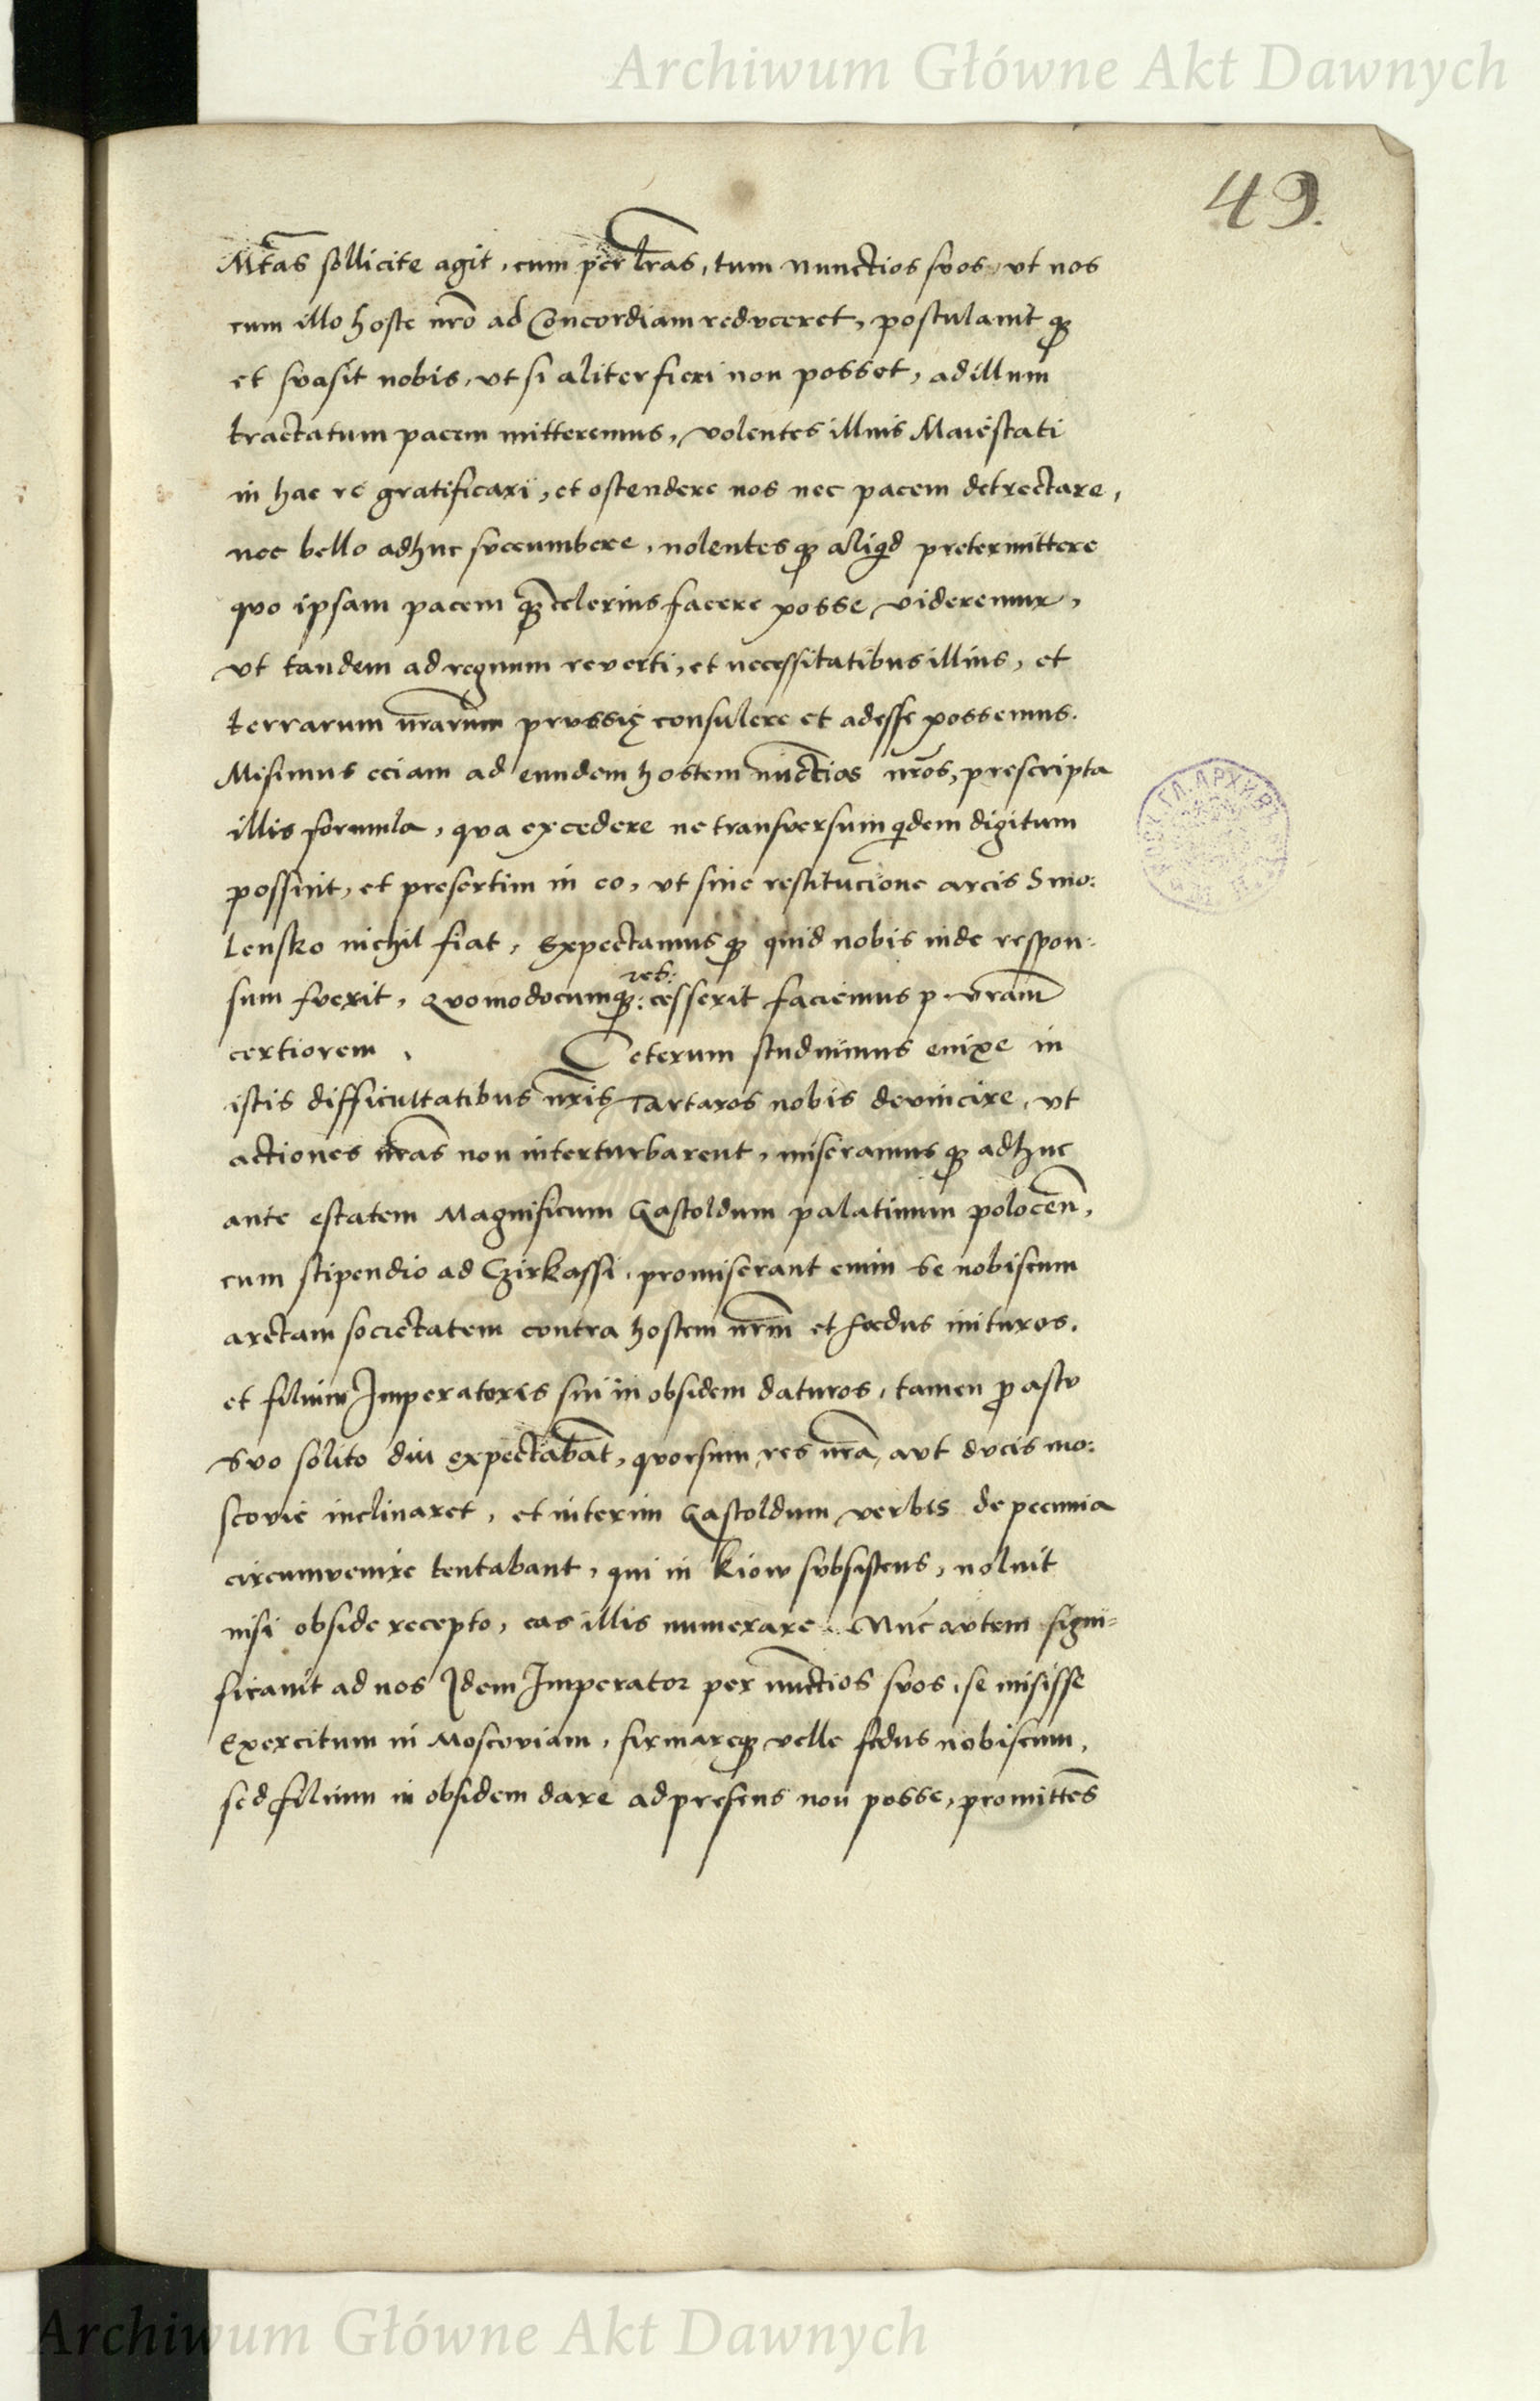 Archiwum Główne Akt Dawnych
49.
Mtas sollicite agit, cum per lras, tum nunctios suos, vt nos
cum illo hoste nro ad Concordiam reduceret, postulauit q3
et suasit nobis, vt si aliter fieri non posset, ad illum
tractatum pacem mitteremus, volentes illius Maiestati
in hac re gratificari, et ostendere nos nec pacem detrectare,
nec bello adhuc succumbere, nolentes q3 aliqd pretermittere
quo ipsam pacem q3 celerius facere posse videremur,
vt tandem ad regnum reverti, et necessitatibus illius, et
terrarum nrarum prussię consulere et adesse possemus.
Misimus eciam ad eundem hostem nuctios nros, prescripta
illis formula, qua excedere ne transversum qdem digitum
possint, et presertim in eo, vt sine restitucione arcis Smo:
lensko nichil fiat, Expectamus q3 quid nobis inde respon:
sum fuerit, Quomodocumq3: res: cesserit faciemus p. vram
certiorem. Ceterum studuimus enixe in
istis difficultatibus nris Tartaros nobis devincire, vt
actiones nras non interturbarent, miseramus q3 adhuc
ante estatem Magnificum Gastoldum palatinum polocen,
cum stipendio ad Czirkassi, promiserant enim se nobiscum
arctam societatem contra hostem nrm et foedus inituros.
et filium Imperatoris sui in obsidem daturos, tamen p astu
suo solito diu expectabat, quorsum res nra, aut ducis mo:
scovie inclinaret, et interim Gastoldum verbis de pecunia
circumvenire tentabant, qui in Kiow subsistens, noluit
nisi obside recepto, eas illis numerare. Nuc autem signi=
ficavit ad nos Idem Imperator per nuctios suos, se misisse
Exercitum in Moscoviam, firmareq3 velle fedus nobiscum,
sed filium in obsidem dare ad presens non posse, promittes
Archiwum Główne Akt Dawnych